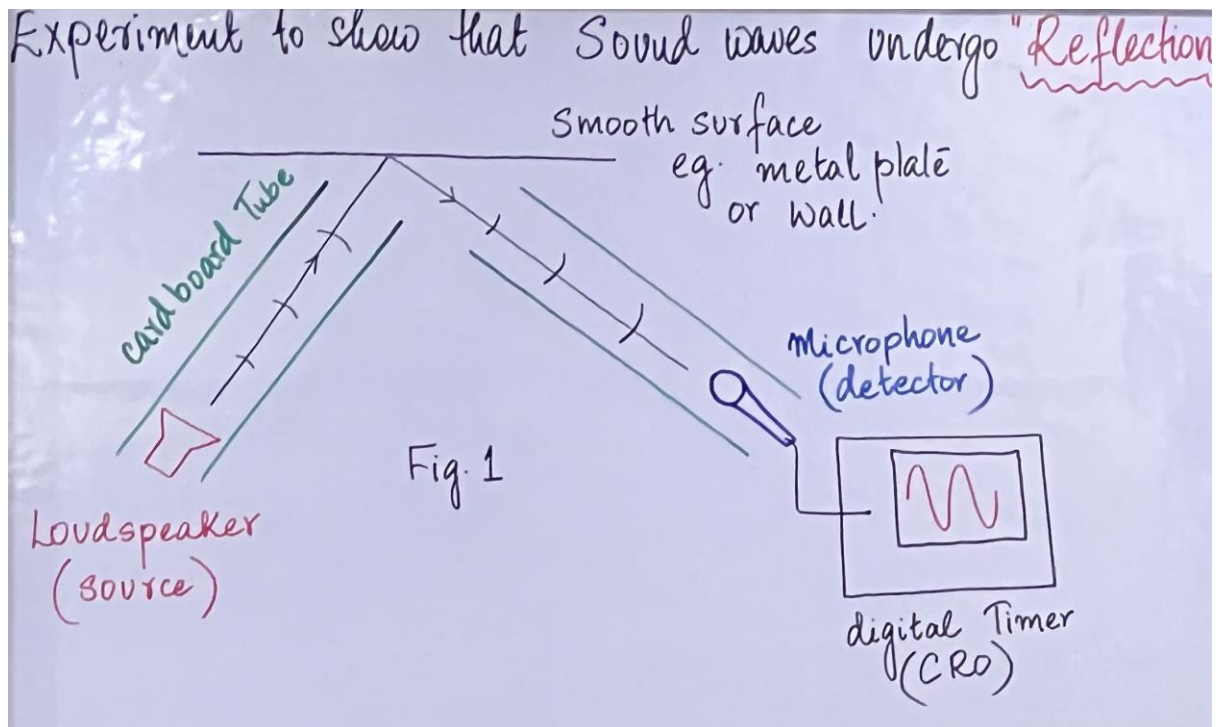 Experiment to show that Sound waves undergo "Reflection
Smooth surface
eg. metal plate
or wall.
cardboard Tube
microphone
(detector)
Fig. 1
Loudspeaker
(source)
digital Timer
(CRO)